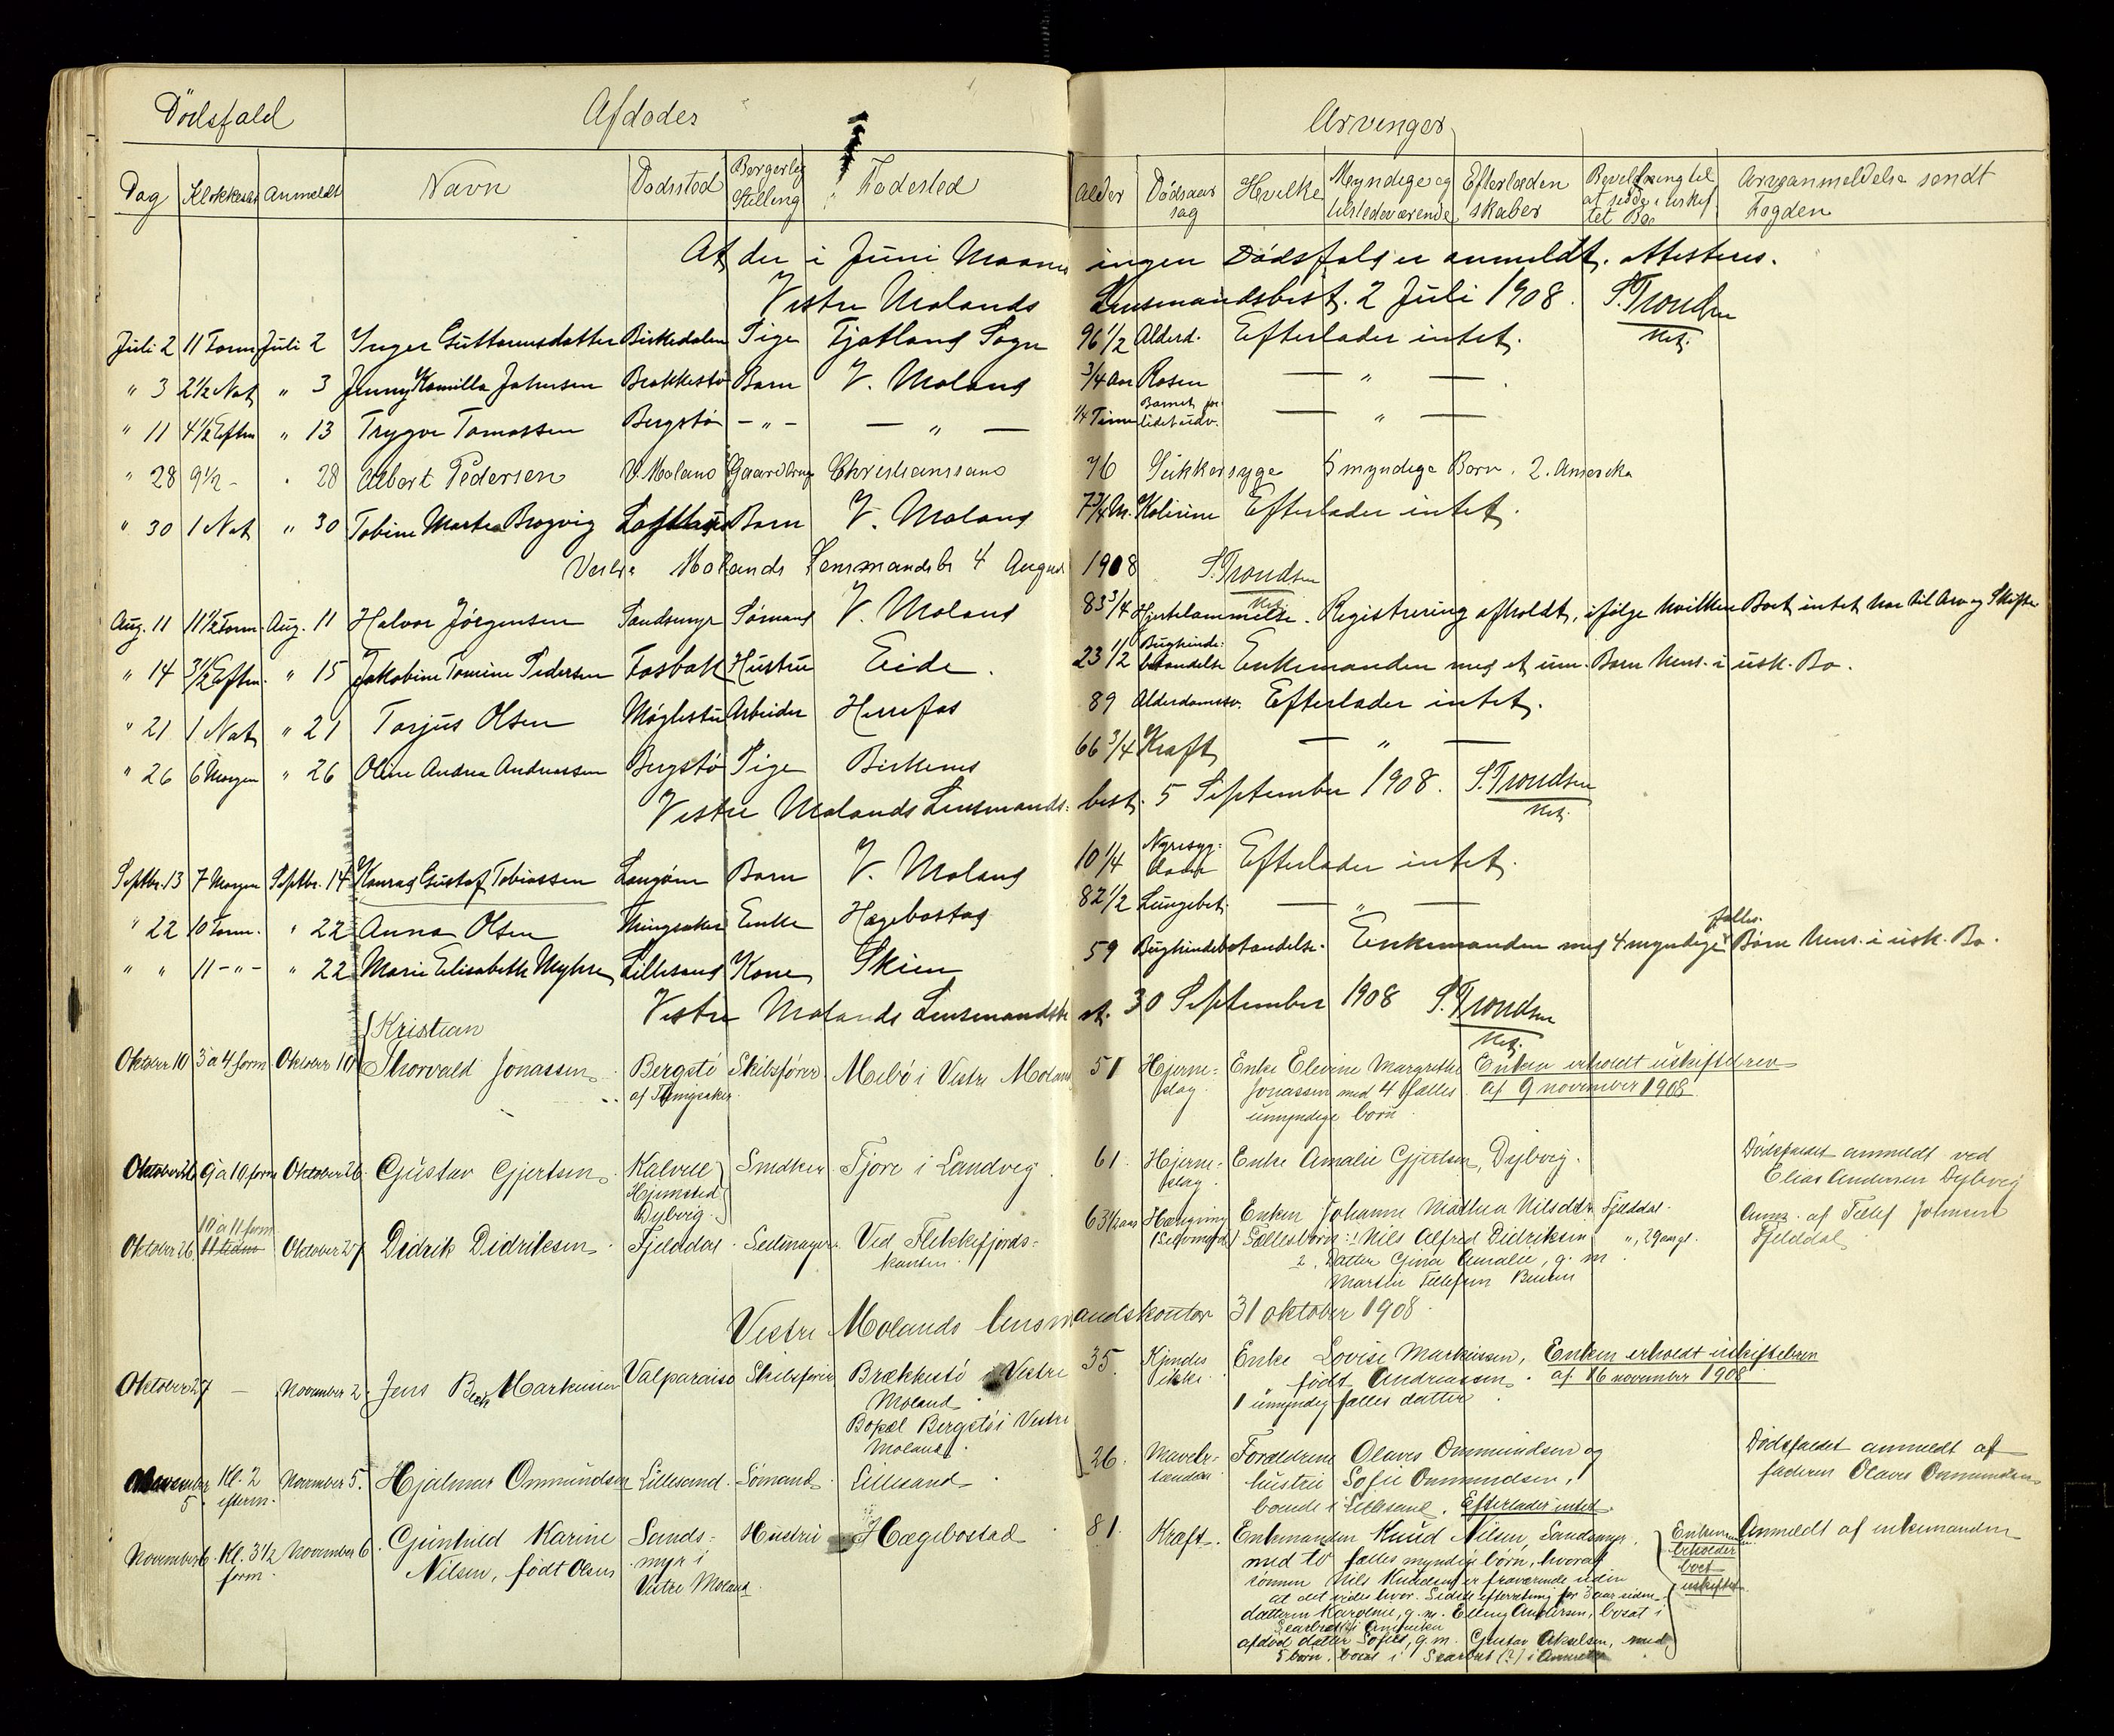 Dödsfald Afdödes Arvinger
Dag Klokkeslet Anmeldt Navn Dödssted Borgerlig Stilling Födested Alder Dödsaarsag Hvilke Myndige og tilstedeværende Efterladenskaber Bevilling til at sidde i uskiftet Bo Arveanmeldelse sendt Fogden
At der i Juni Maaned ingen Dödsfald er anmeldt. Attesteres.
Vestre Molands Lensmandsbest. 2 Juli 1908. S. Trondsen
Juli 2 11 Form Juli 2 Inger Guttormsdatter Birkedalen Pige Fjotland Sogn 96 1/2 Alderd. Efterlader intet.
" 3 2 1/2 Nat " 3 Jenny Kamilla Johnsen Brækkestø Barn V. Moland 3/4 Aar Rosen — " —
" 11 4 1/2 Eftm " 13 Trygve Tomassen Bergstø - " - — " — 1/4 Time Barnet lidet udv. — " —
" 28 9 1/2 - " 28 Albert Pedersen V. Moland Gaardbrug Christianssand 76 Sukkersyge 5 myndige Born. 2. Amerika
" 30 1 Nat " 30 Tobine Martea Brogvig Barn V. Moland 7 3/4 M. Kolerine Efterlader intet.
Vestre Molands Lensmandsb 4 August 1908 S. Trondsen
Aug. 11 11 1/2 Form. Aug. 11 Halvor Jörgensen Sandsmyr Sømand V. Moland 83 3/4 Hjertelammelse. Registrering afholdt, ifølge hvilken Boet intet har til Arv og Skifte
" 14 3 1/2 Eftm. " 15 Jakobine Tomine Pedersen Fosbæk Hustru Eide. 23 1/2 Bughindebetændelse Enkemanden med et um. Barn hens. i usk. Bo.
" 21 1 Nat " 21 Torjus Olsen Møglestu Arbeider Herefos 89 Alderdomssv. Efterlader intet.
" 26 6 Morgen " 26 Oline Andrea Andreassen Bergstø Pige Birkenes 66 3/4 Kræft — " —
Vestre Molands Lensmandsbest. 5 September 1908. S. Trondsen
Septbr. 13 7 Morgen Septbr. 14 Konrad Gustaf Tobiassen Langøen Barn V. Moland 10 1/4 Nyresyg- Efterlader intet.
" 22 10 Form. " 22 Anna Olsen Tingsaker Enke Hægebostad 82 1/2 Lungebet. — " —
" " 11 - " - " 22 Marie Elisabeth Myhre Lillesand Kone Skien 59 Bughindebetændelse. Enkemanden med 4 myndige fælles Børn hens. i usk. Bo.
Vestre Molands Lensmandsbest. 30 September 1908 S. Trondsen
Kristian
Oktober 10 3 a 4 form Oktober 10 Thorvald Jonassen Bergstö Skibsfører Mebö i Vestre Moland 51 Hjerne- Enke Elevine Margrethe Enken erholdt uskiftebrev
af Tingsaker slag Jonassen med 4 fælles af 9 november 1908
umyndige børn
Oktober 26 9 a 10 form Oktober 26 Gustav Gjertsen Kalvild Snedker Fjore i Landvig 61. Hjerne- Enke Amalie Gjertsen, Dybvig. Dödsfaldet anmeldt ved
Hjemsted slag Elias Andersen Dybvig
Dybvig.
10 a 11 form
Oktober 26 11 tiden Oktober 27 Didrik Didriksen Fjelddal Seilmager Ved Flekkefjords- 63 1/2 aar Hængning Enken Johanne Mathea Nilsdtr Fjelddal. Anm. af Tellef Johnsen
kanten (Selvmord) Fællesbörn: 1 Nils Alfred Didriksen ", 29 aar gl. Fjelddal
2. Datter Gina Amalie, g. m
Martin Tellefsen
Vestre Molands lensmandskontor 31 oktober 1908.
Oktober 27 — November 2. Jens Beck Markussen Valparaiso Skibsfører Brækkestö i Vestre 35. Kjendes Enke Lovise Markussen, Enken erholdt uskiftebrev
Moland ikke. født Andreassen. af 16 november 1908
Bopæl Bergstö i Vestre 1 umyndig fælles datter
Moland.
November 5 Kl. 2 efterm. November 5. Hjalmar Ommundsen Lillesand. Sömand. Lillesand 26. Forældrene Olaves Ommundsen og Dödsfaldet anmeldt af
hustru Sofie Ommundsen, faderen Olaves Ommundsen
boende i Lillesand. Efterlader intet.
November 6. Kl. 3 1/2 form. November 6. Gunhild Karine Sands- Hustru Hægebostad 81. Kræft. Enkemanden Knud Nilsen, Sandsmyr, Enkemanden Anmeldt af enkemanden
Nilsen, født Olsen myr i med to fælles myndige børn, hvoraf erholder
Vestre Moland. sønnen Nils Knudsen er fraværende uden boet
at det vides hvor. Sidste efterretning for 3 aar siden. uskiftet.
datteren Karoline, g. m. Elling Andersen, bosat i
i Amerika
afdød datter Sofie, g. m. Gustav Akselsen, med
5 børn, bosat i (?) i Amerika